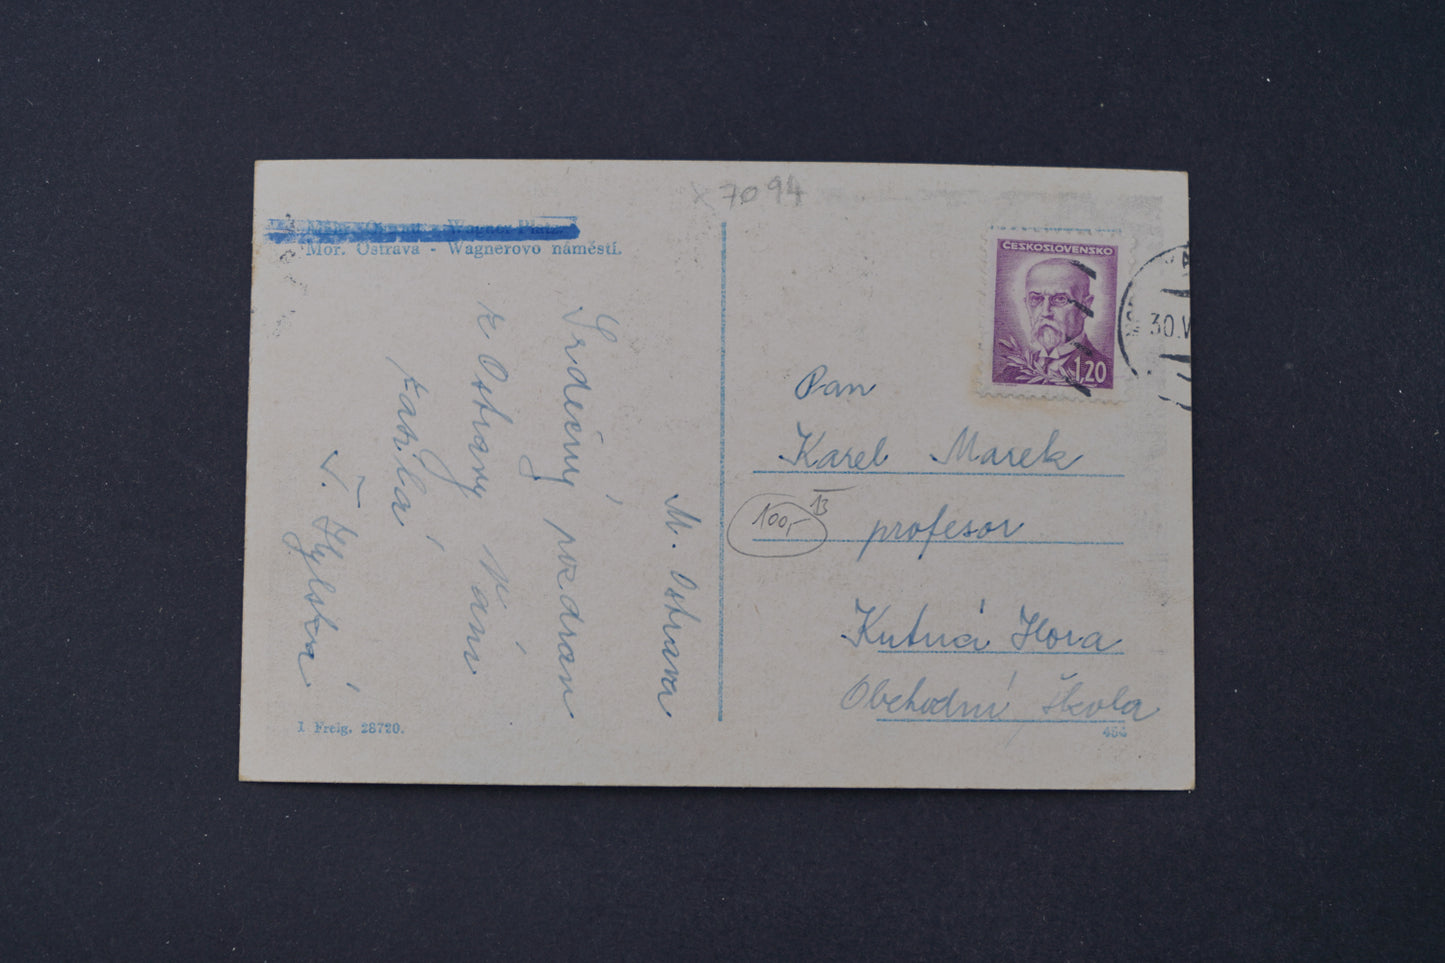 x 7094
Wagner Platz
Mor. Ostrava - Wagnerovo náměstí.
ČESKOSLOVENSKO
1,20
30.V
Pan
Karel Marek
100,-
13
profesor
Kutná Hora
Obchodní škola
454
M. Ostrava
Srdečný pozdrav
z Ostravy Vám
zasílá
I Freig. 28720.